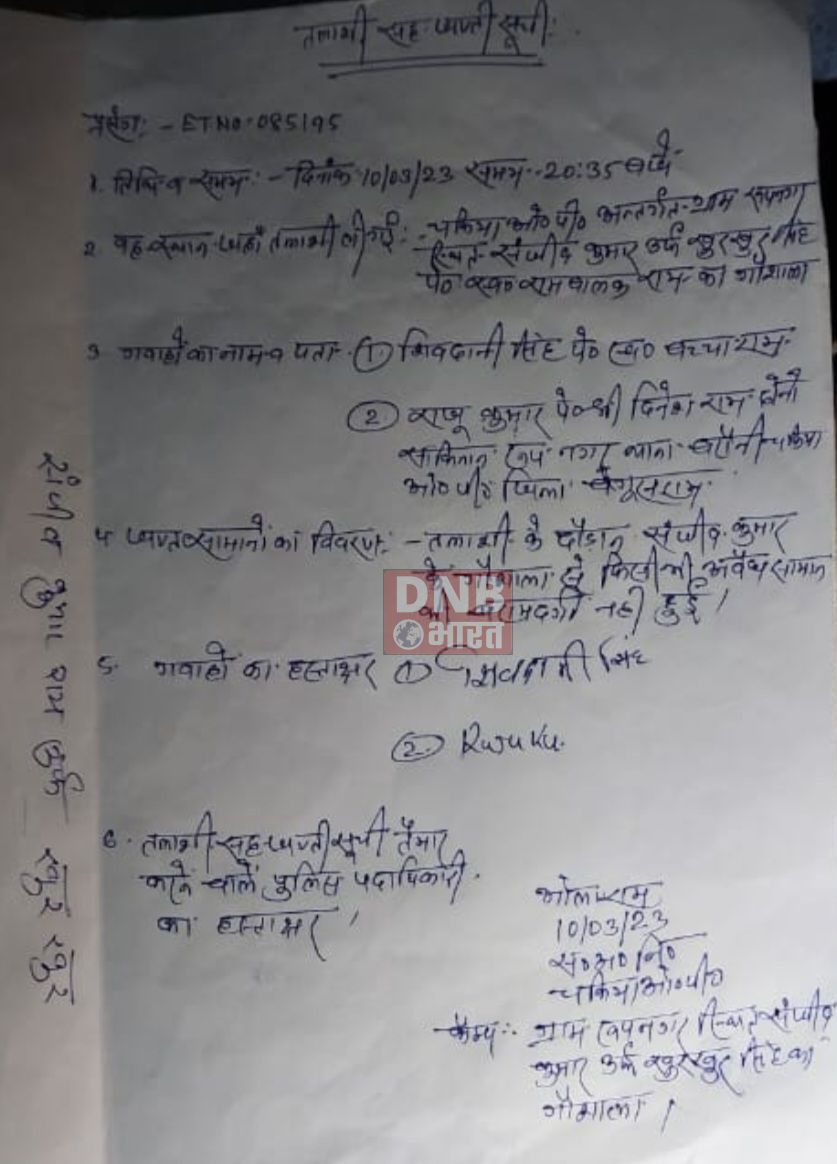 तलाशी सह जप्ती सूची
प्रसंग:- ET NO-085195
1. तिथि व समय:- दिनांक 10/03/23 समय-20:35 बजे
2. वह स्थान जहाँ तलाशी ली गई:- चकिया ओ०पी० अन्तर्गत ग्राम रूपनगर
स्थित संजीव कुमार उर्फ खुरखुर सिंह
पे० स्व० रामबालक राम का गौशाला
3. गवाहों का नाम व पता- (1) शिवदानी सिंह पे० स्व० बच्चा राम
(2) राजू कुमार पे० श्री दिनेश राम दोनों
साकिनान रूपनगर थाना बरौनी चकिया
ओ०पी० जिला बेगूसराय
4. जप्त सामानों का विवरण:- तलाशी के दौरान संजीव कुमार
के गौशाला से किसी भी अवैध सामान
की बरामदगी नहीं हुई।
5. गवाहों का हस्ताक्षर (1) शिवदानी सिंह
(2) Raju Ku.
6. तलाशी सह जप्ती सूची तैयार
करने वाले पुलिस पदाधिकारी
का हस्ताक्षर।
भोला राम
10/03/23
स०अ०नि०
चकिया ओ०पी०
कैम्प:- ग्राम रूपनगर स्थित संजीव
कुमार उर्फ खुरखुर सिंह का
गौशाला।
संजीव कुमार राम उर्फ खुर खुर
DNB
भारत